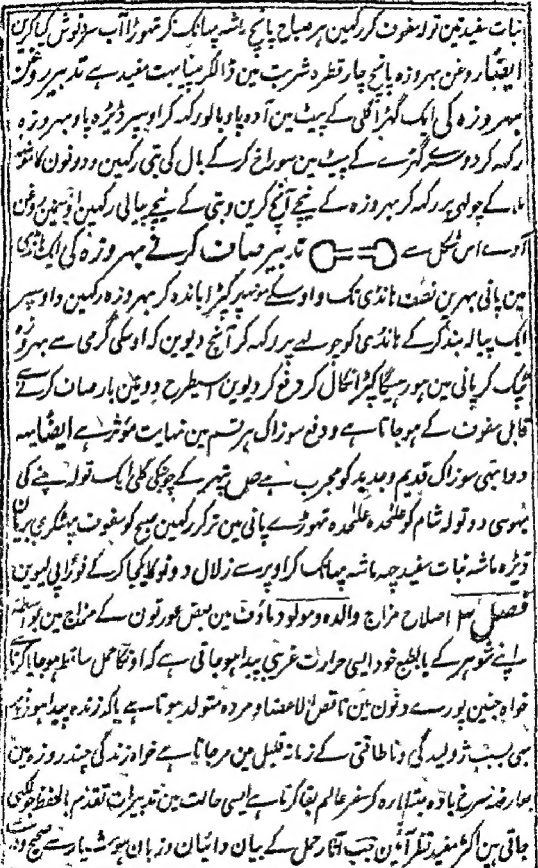 نبات سفید تین تولہ سفوف کر رکہین ہر صباح پانچ ماشہ پہانک کر تہوڑا آب سرد نوش کیا کرین
ایضاً روغن بہروزہ پانچ چار قطرہ شربت مین ڈالکر پینا بہت مفید ہے تدبیر روغن
بہروزہ کی ایک گہڑا گلی کے پیٹ مین آدہ پاو بالو رکہہ کر اوسپر ڈیڑہ پاو بہروزہ
رکہہ کر دوسرے گہڑے کے پیٹ مین سوراخ کر کے بال کی بتی رکہین و دونون کا منہ
ملا کے چولہے پر رکہہ کر بہروزہ کے نیچے آنچ کرین و بتی کے نیچے پیالی رکہین اوسمین روغن
آوے اس شکل سے تدبیر صاف کرنے بہروزہ کی ایک ہانڈی
مین پانی بہرین نصف ہانڈی تک و اوسکے مونہہ پر کپڑا باندہ کر بہروزہ رکہین و اوسپر
ایک پیالہ بند کر کے ہانڈی کو چولہے پر رکہہ کر آنچ دیوین کہ اوسکی گرمی سے بہروزہ
ٹپک کر پانی مین ہو رہیگا کپڑا نکال کر دفع کر دیوین اسیطرح دو تین بار صاف کرنے سے
قابل سفوف کے ہوجاتا ہے و دفع سوزاک ہر قسم مین نہایت مؤثر ہے ایضاً یہہ
دوا بہی سوزاک قدیم و جدید کو مجرب ہے پتہر کے چونہ کی کلی ایک تولہ چنے کی
بہوسی دو تولہ شام کو علحدہ علحدہ تہوڑے پانی مین تر کر رکہین صبح کو سفوف پہٹکری بریان
ڈیڑہ ماشہ نبات سفید چہہ ماشہ پہانک کر اوپر سے زلال دونو کا یکجا کر کے فوراً پی لیوین
فصل اصلاح مزاج والدہ و مولود ماؤف مین بعض عورتون کے مزاج مین بواسطہ
اپنے شوہر کے یا بالطبع خود ایسی حرارت غریبی پیدا ہو جاتی ہے کہ اونکا حمل ساقط ہوجایا کرتا
خواہ جنین پورے دنون مین ناقص الاعضا و مردہ متولد ہوتا ہے یا کہ زندہ پیدا ہو تو بہی
بسبب ژولیدگی و ناطاقتی کے زمانہ قلیل مین مرجاتا ہے خواہ زندگی چند روزہ مین
بعارضہ سرخ بادہ مبتلا رہ کر سفر عالم بقا کرتا ہے ایسی حالت مین تدبیرات تقدم بالحفظ جو لکہی
جاتی ہین اکثر مفید نظر آئین جب آثار حمل کے بیان دائیان و زبان ہوشیار سے صحیح